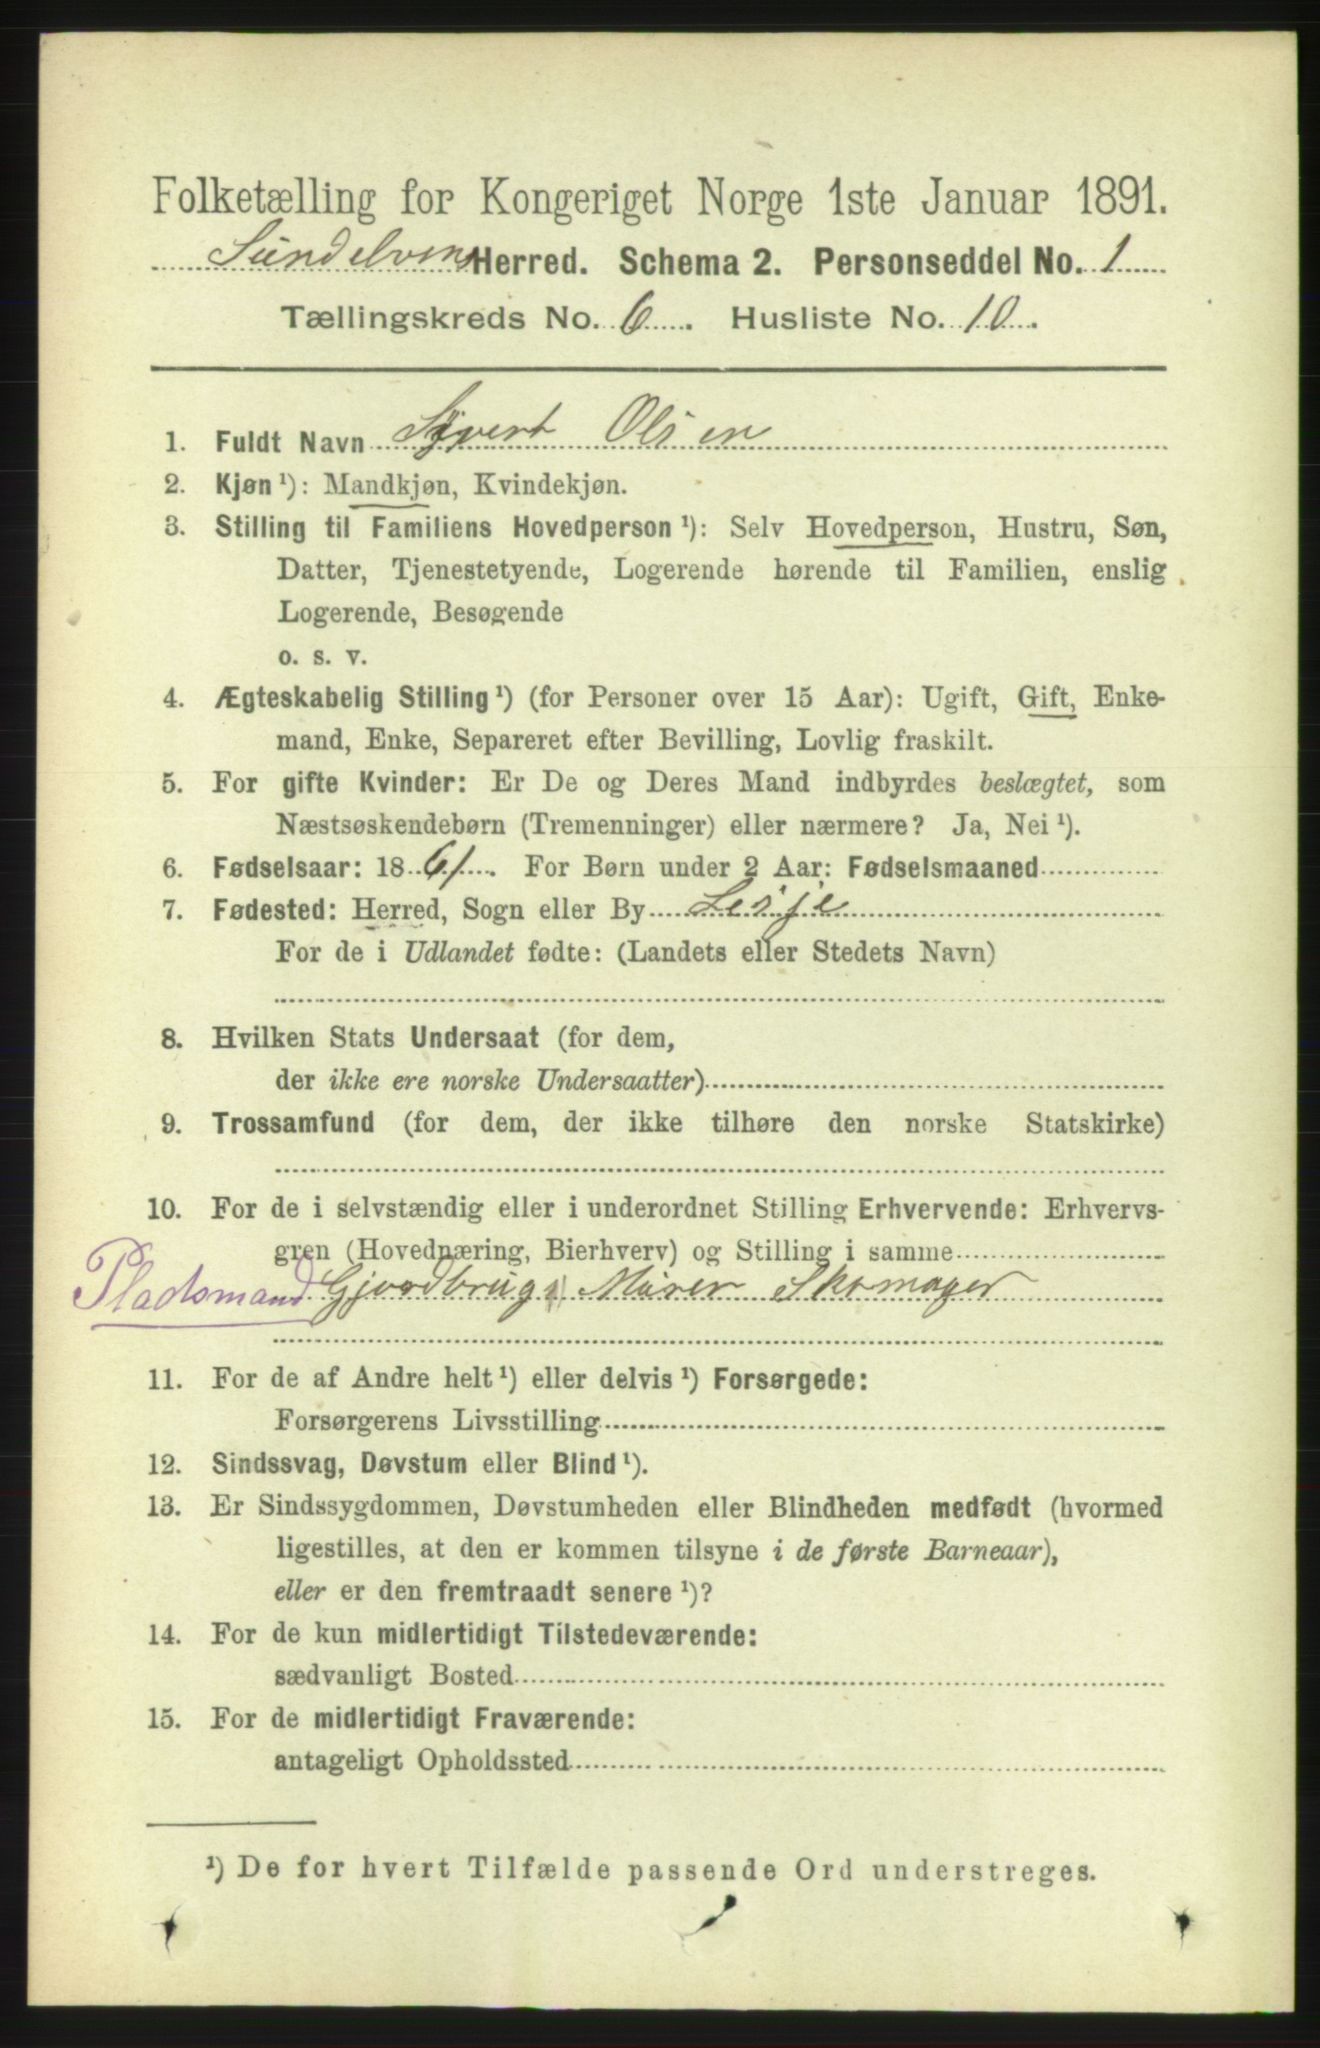 Folketælling for Kongeriget Norge 1ste Januar 1891.
Sundelvens Herred. Schema 2. Personseddel No. 1
Tællingskreds No. 6. Husliste No. 10.
1. Fuldt Navn Sivert Olsen
2. Kjøn ¹): Mandkjøn, Kvindekjøn.
3. Stilling til Familiens Hovedperson ¹): Selv Hovedperson, Hustru, Søn,
Datter, Tjenestetyende, Logerende hørende til Familien, enslig
Logerende, Besøgende
o. s. v.
4. Ægteskabelig Stilling ¹) (for Personer over 15 Aar): Ugift, Gift, Enke-
mand, Enke, Separeret efter Bevilling, Lovlig fraskilt.
5. For gifte Kvinder: Er De og Deres Mand indbyrdes beslægtet, som
Næstsøskendebørn (Tremenninger) eller nærmere? Ja, Nei ¹).
6. Fødselsaar: 1861. For Børn under 2 Aar: Fødselsmaaned
7. Fødested: Herred, Sogn eller By Lesje
For de i Udlandet fødte: (Landets eller Stedets Navn)
8. Hvilken Stats Undersaat (for dem,
der ikke ere norske Undersaatter)
9. Trossamfund (for dem, der ikke tilhøre den norske Statskirke)
10. For de i selvstændig eller i underordnet Stilling Erhvervende: Erhvervs-
gren (Hovednæring, Bierhverv) og Stilling i samme
Pladsmand Gjordbrug Murer Skomager
11. For de af Andre helt ¹) eller delvis ¹) Forsørgede:
Forsørgerens Livsstilling
12. Sindssvag, Døvstum eller Blind ¹).
13. Er Sindssygdommen, Døvstumheden eller Blindheden medfødt (hvormed
ligestilles, at den er kommen tilsyne i de første Barneaar),
eller er den fremtraadt senere ¹)?
14. For de kun midlertidigt Tilstedeværende:
sædvanligt Bosted
15. For de midlertidigt Fraværende:
antageligt Opholdssted
¹) De for hvert Tilfælde passende Ord understreges.